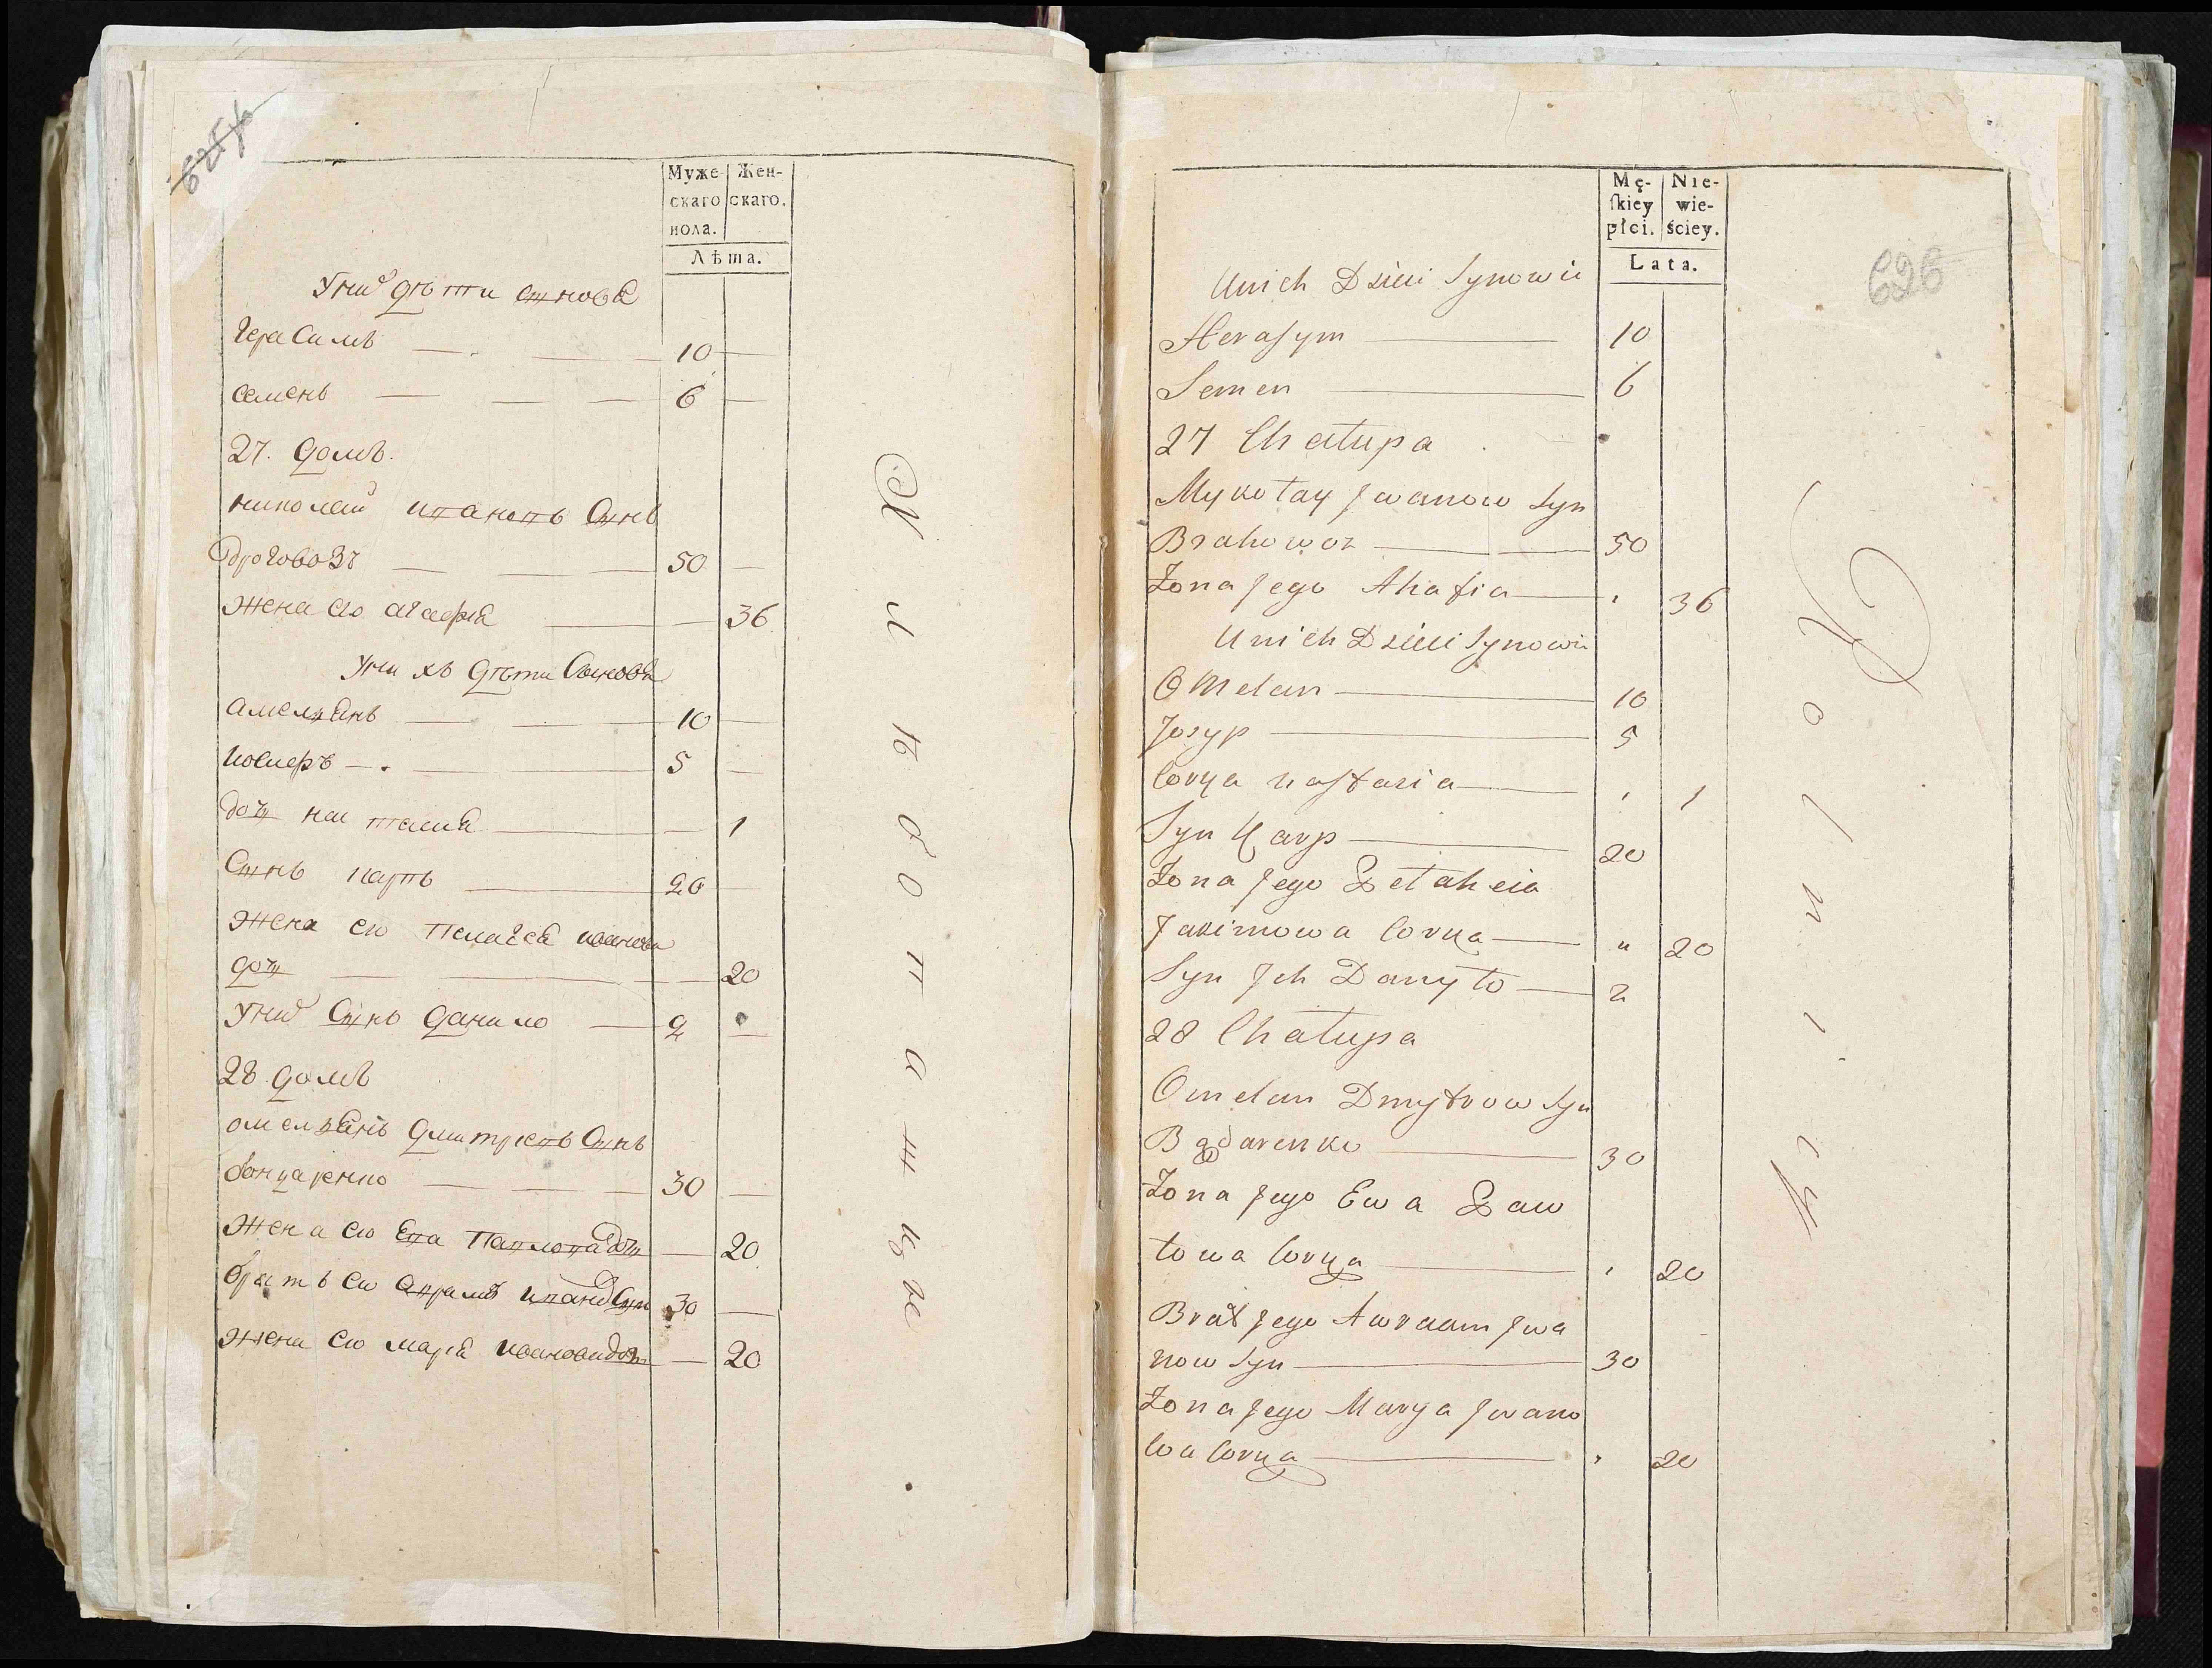 Муже-
скаго
пола.
Жен-
скаго.
Лѣта.
Унихъ дѣти сынове
Герасимъ 10
семенъ 6
27. домъ.
николай ивановъ сынъ
дроговозъ 50
жена его агафiя 36
Унихъ дѣти сынове
амелъянъ 10
иосифъ 5
дочь настасия 1
сынъ карпъ 20
жена его пелагея
дочь 20
Унихъ сынъ данило 2
28 домъ
омелъянъ дмитревъ сынъ
бондаренко 30
жена его Ева павлова дочь 20
братъ его аврамъ иванов сын 30
жена его марiя иванова дочь 20
626
Mę-
ſkiey
płci.
Nie-
wie-
ściey.
Lata.
Unich Dzieci Synowie
Heraſym 10
Semen 6
27 Chałupa
Mykołay Jwanow Syn
50
Żona Jego Ahafia 36
Unich Dzieci Synowie
OMelan 10
Josyp 5
Corka naſtazia 1
Syn Karp 20
Żona Jego Pełaheia
Jakimowa Corka 20
Syn Jch Danyło 2
28 Chałupa
Omelan Dmytrow Syn
30
Żona Jego Ewa Paw
łowa Corka 20
Brat Jego Awraam Jwa
now Syn 30
Żona Jego Marya Jwano
wa Corka 20